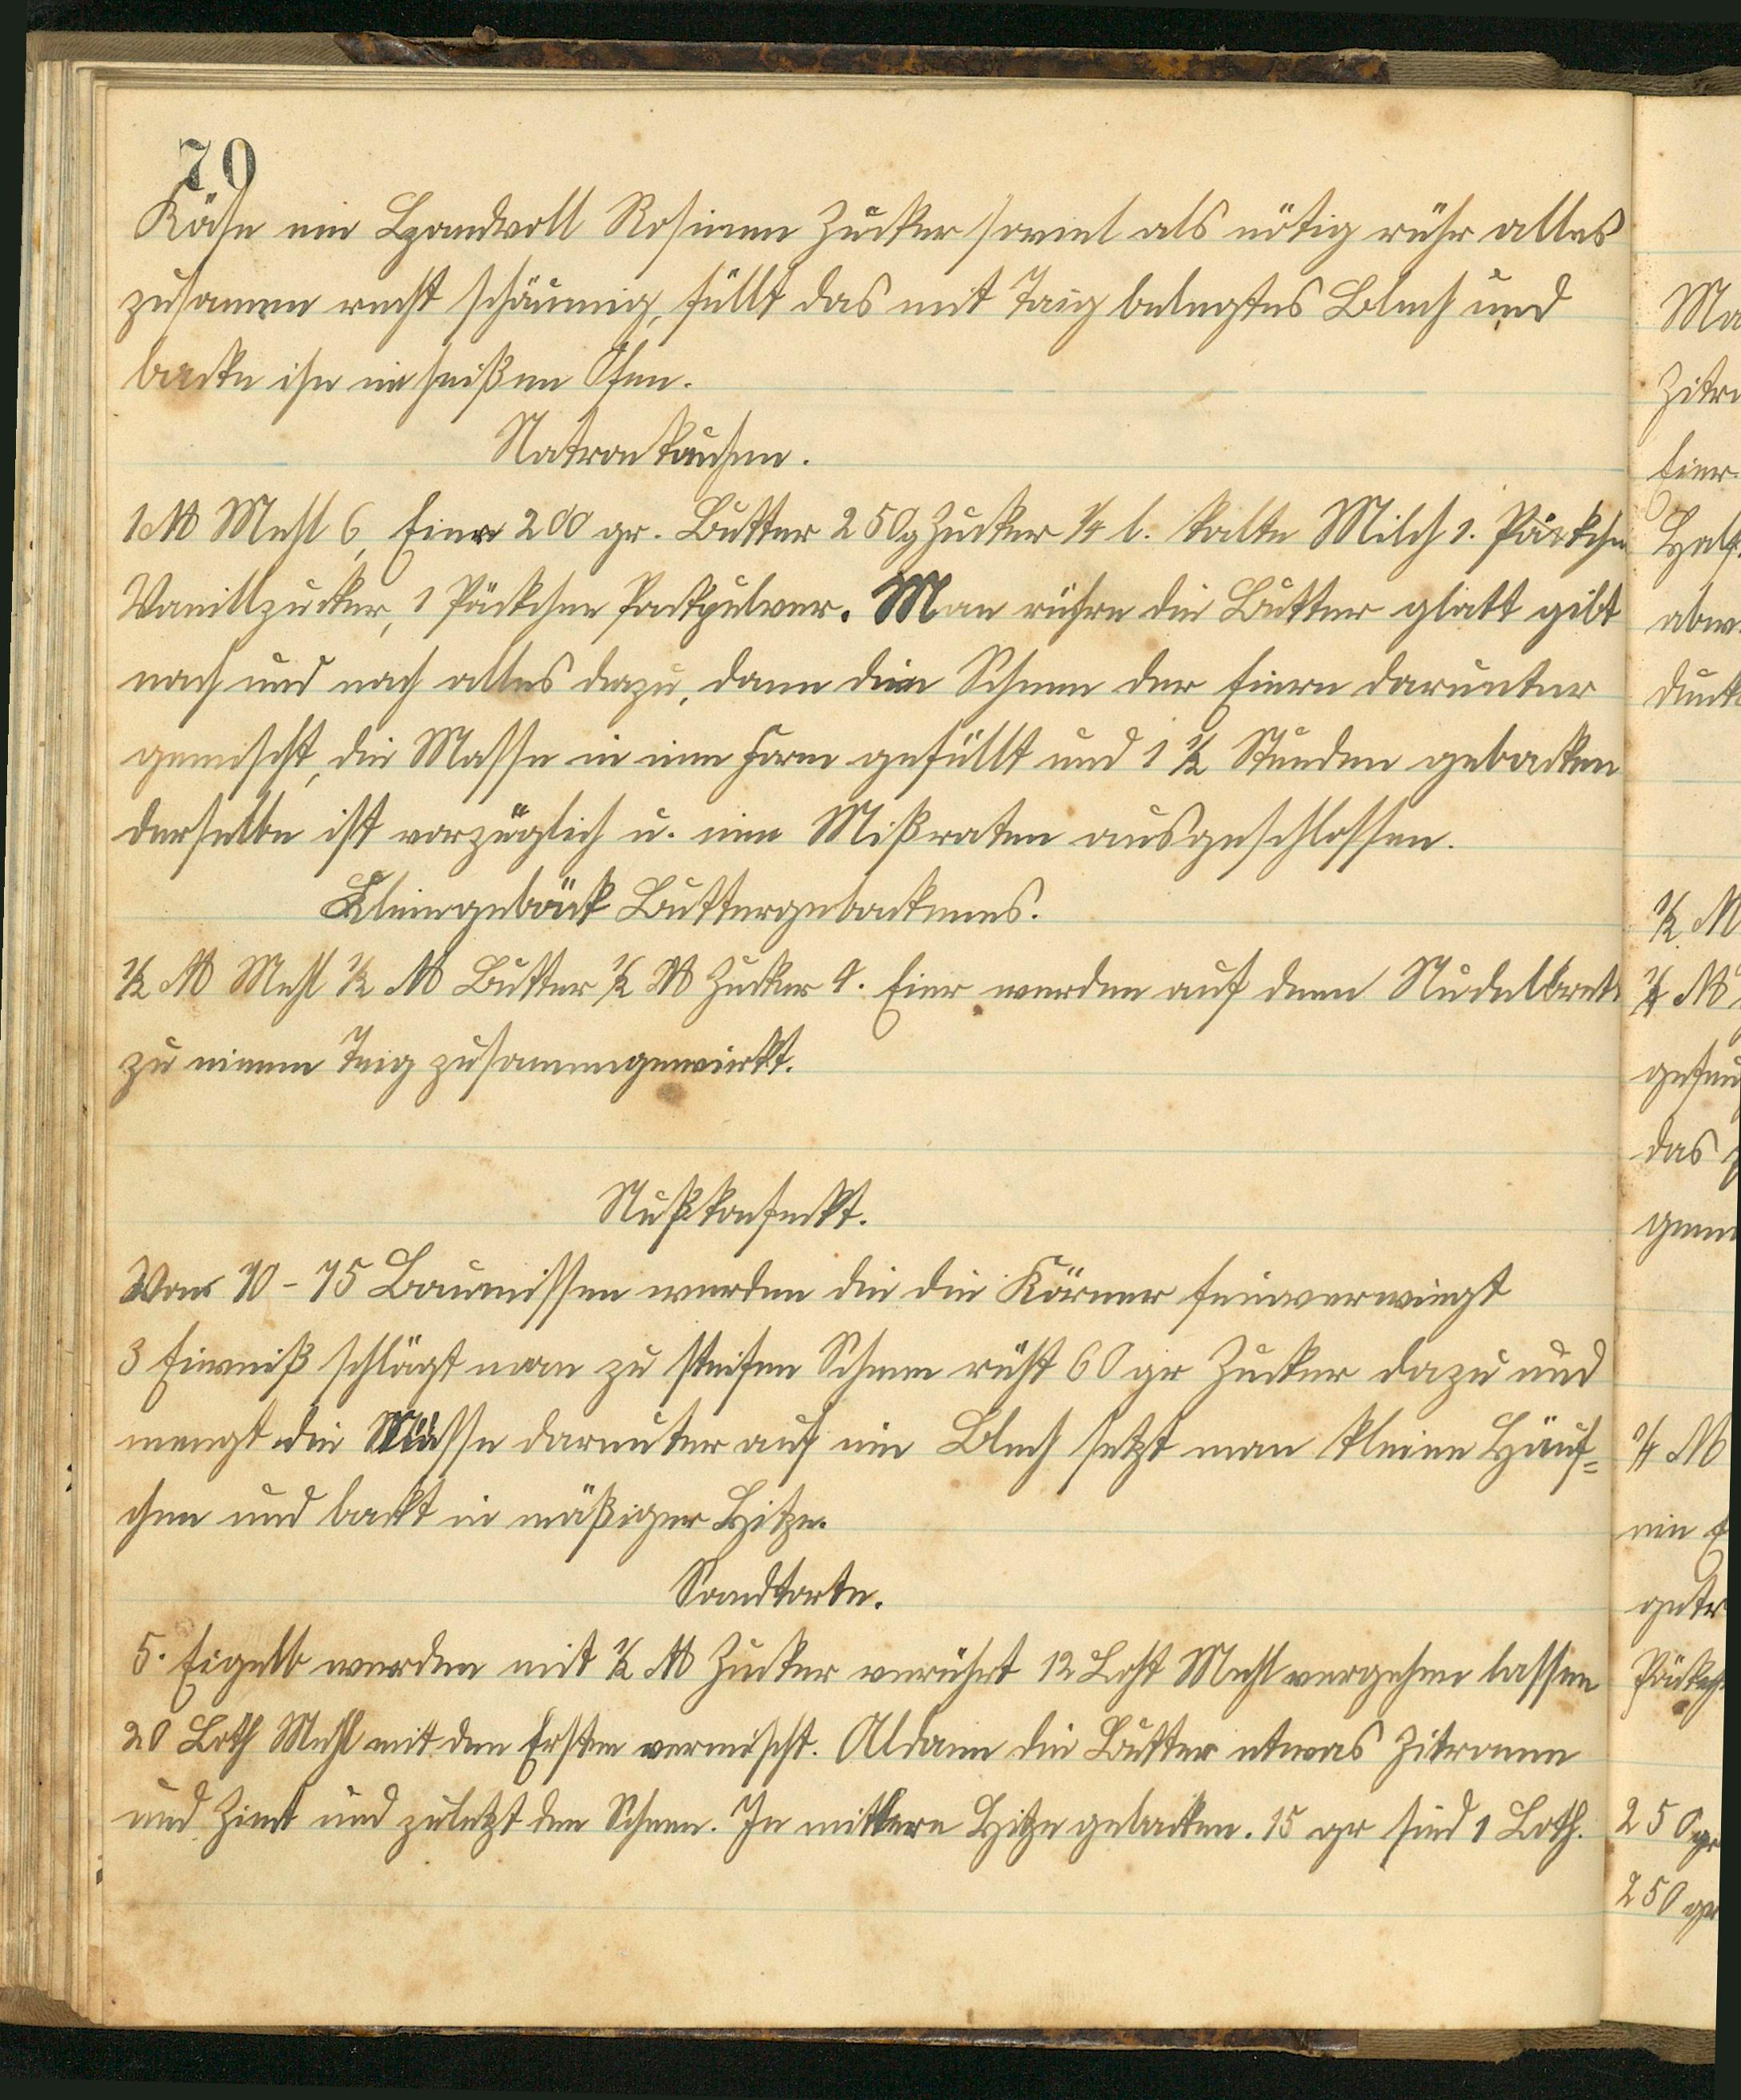 70
Käse ein Handvoll Rosinen Zucker soviel als nötig rühr alles
zusamen recht schäumig, füllt das mit Taig belegtes Blech und
backe ihn im heißen Ofen.
Natronkuchen.
1 ℔ Mehl 6, Eier 200 gr. Butter 250g Zucker 1/4 l. kalte Milch 1. Päckchen
Vanillzucker, 1 Päckchen Packpulver. Man rühre die Butter glatt gibt
nach und nach alles dazu, dann die Schnee der Eiern darunter
gemischt, die Masse in eine Form gefüllt und 1 1/2 Stunden gebacken
derselbe ist vorzüglich u. ein Mißraten ausgeschlossen.
Kleingebäck Buttergebackenes.
1/2 ℔ Mehl 1/2 ℔ Butter 1/2 ℔ Zucker 4. Eier werden auf dem Nudelbrett
zu einem Teig zusammengewirkt.
Nußkonfekt.
Von 70 - 75 Baumnissen werden die die Körner feinverwiegt
3 Eiweiß schlägt man zu steifen Schnee rüht 60 gr Zucker dazu und
mengt die Nüsse darunter auf ein Blech setzt man kleine Häuf=
chen und backt in mäßiger Hitze.
Sandtorte.
5. Eigelb werden mit 1/2 ℔ Zucker verrührt 12 Loht Mehl vergehen lassen
20 Loth Mehl mit dem Ersten vermischt. Aldann die Butter etwas Zitronen
und Zimt und zuletzt den Schnee. In mittlere Hitze gebacken. 15 gr sind 1 Loth.
Ma
Zitro
Eier.
Half
abw
dunk
1/2 ℔
1/4 ℔
das
1/4 ℔
ein E
Päckch
250 gr
250 gr